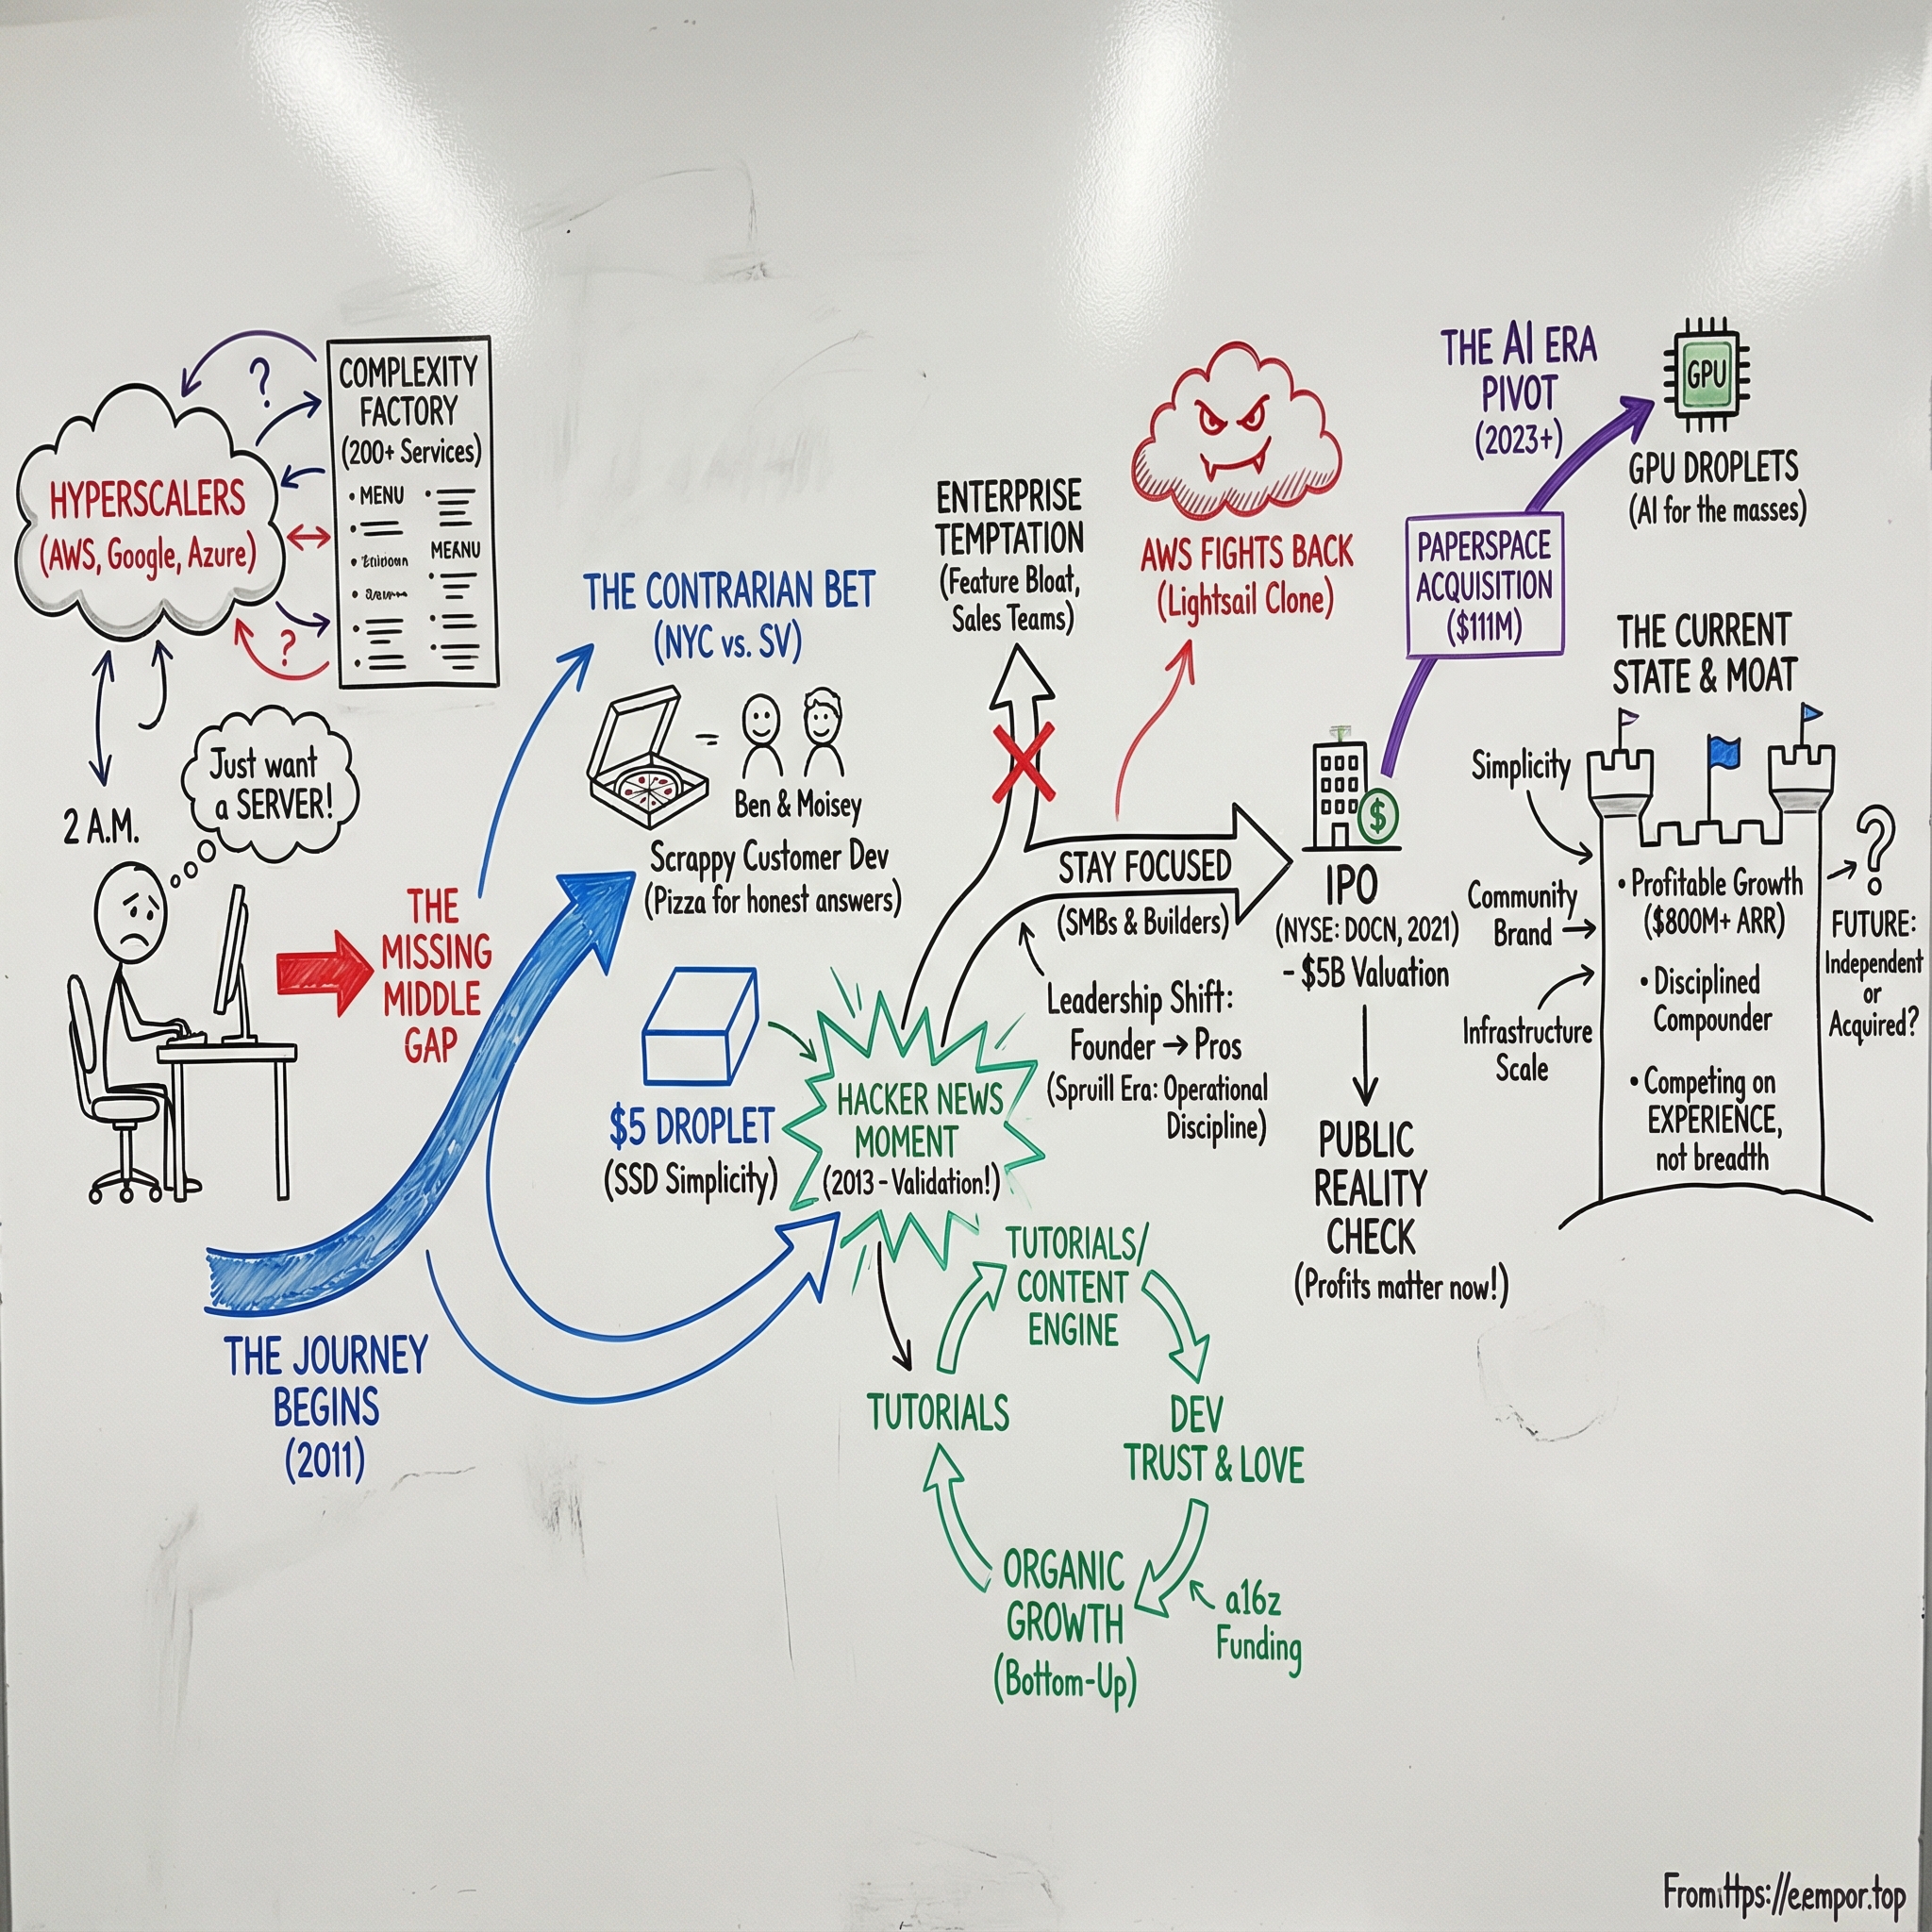 HYPERSCALERS
(AWS, Google, Azure)
?
?
COMPLEXITY
FACTORY
(200+ Services)
• MENU
MEANU
Just want
a SERVER!
2 A.M.
THE
MISSING
MIDDLE
GAP
THE JOURNEY
BEGINS
(2011)
THE CONTRARIAN BET
(NYC vs. SV)
Ben & Moisey
Scrappy Customer Dev
(Pizza for honest answers)
$5 DROPLET
(SSD Simplicity)
HACKER NEWS
MOMENT
(2013 - Validation!)
TUTORIALS/
CONTENT
ENGINE
TUTORIALS
DEV
TRUST & LOVE
ORGANIC
GROWTH
(Bottom-Up)
a16z
Funding
ENTERPRISE
TEMPTATION
(Feature Bloat,
Sales Teams)
AWS FIGHTS BACK
(Lightsail Clone)
STAY FOCUSED
(SMBs & Builders)
Leadership Shift:
Founder → Pros
(Spruill Era: Operational
Discipline)
$
IPO
(NYSE: DOCN, 2021)
- $5B Valuation
PUBLIC
REALITY
CHECK
(Profits matter now!)
THE AI ERA
PIVOT
(2023+)
PAPERSPACE
ACQUISITION
($111M)
GPU
GPU DROPLETS
(AI for the masses)
THE CURRENT
STATE & MOAT
Simplicity
Community
Brand
Infrastructure
Scale
• Profitable Growth
($800M+ ARR)
• Disciplined
Compounder
• Competing on
EXPERIENCE,
not breadth
?
FUTURE:
Independent
or
Acquired?
From:Https://eempor.top